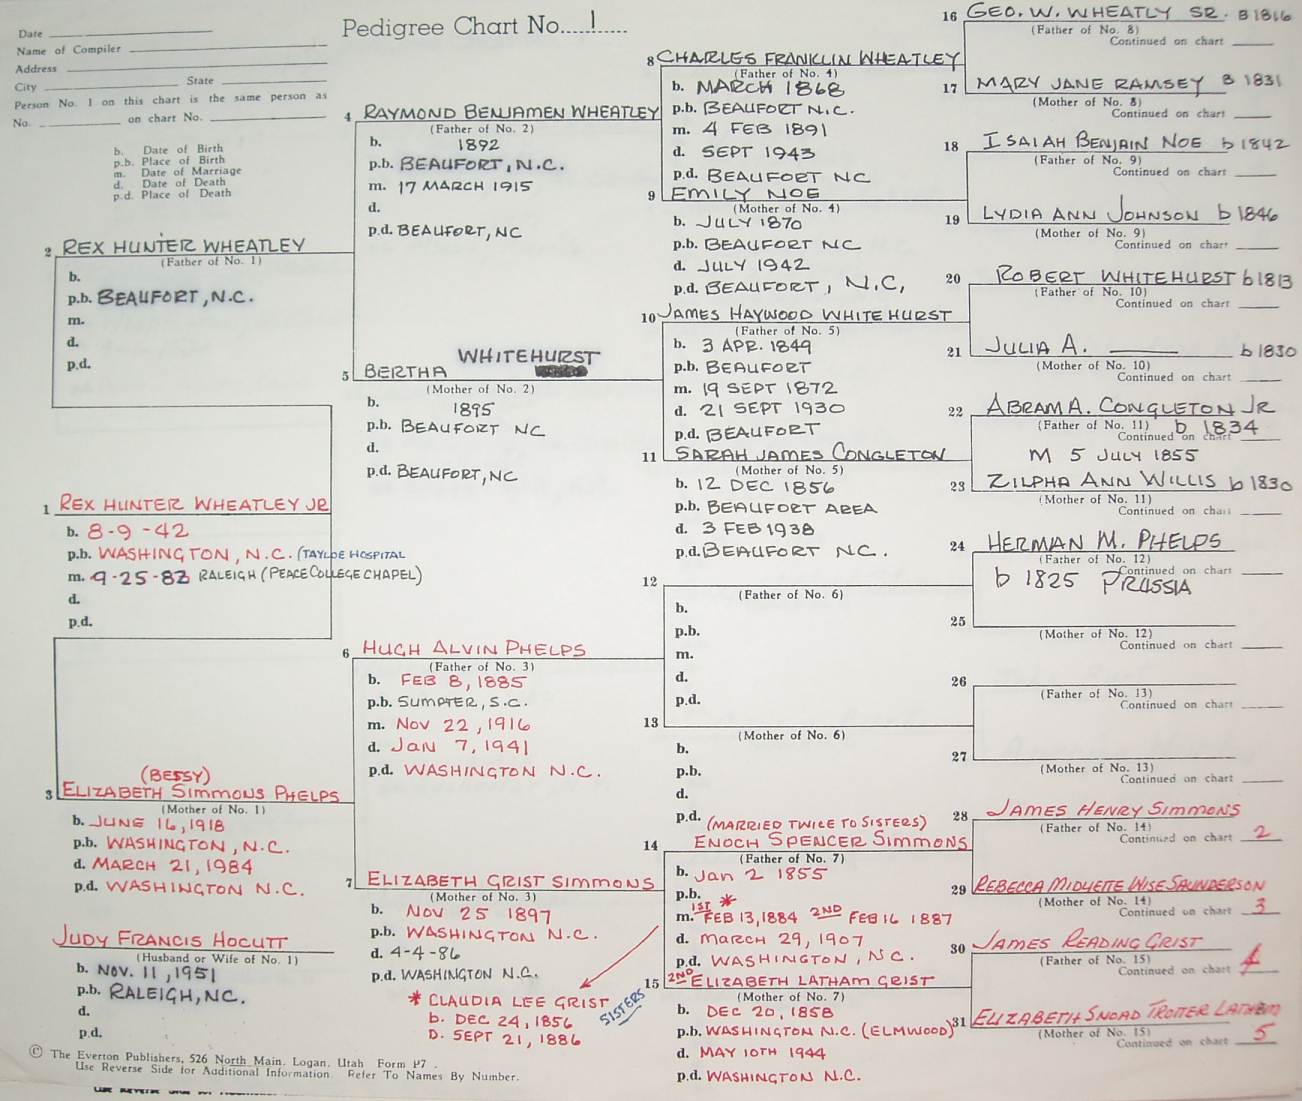 Pedigree Chart No.....1......
Date
Name of Compiler
Address
City State
Person No. 1 on this chart is the same person as
No. on chart No.
b. Date of Birth
p.b. Place of Birth
m. Date of Marriage
d. Date of Death
p.d. Place of Death
1 REX HUNTER WHEATLEY JR
b. 8-9-42
p.b. WASHINGTON, N.C. (TAYLOE HOSPITAL
m. 9-25-82 RALEIGH (PEACE COLLEGE CHAPEL)
d.
p.d.
2 REX HUNTER WHEATLEY
(Father of No. 1)
b.
p.b. BEAUFORT, N.C.
m.
d.
p.d.
(BESSY)
3 ELIZABETH SIMMONS PHELPS
(Mother of No. 1)
b. JUNE 16, 1918
p.b. WASHINGTON, N.C.
d. MARCH 21, 1984
p.d. WASHINGTON N.C.
JUDY FRANCIS HOCUTT
(Husband or Wife of No. 1)
b. NOV. 11, 1951
p.b. RALEIGH, NC.
d.
p.d.
4 RAYMOND BENJAMEN WHEATLEY
(Father of No. 2)
b. 1892
p.b. BEAUFORT, N.C.
m. 17 MARCH 1915
d.
p.d. BEAUFORT, NC
5 BERTHA WHITEHURST
(Mother of No. 2)
b. 1895
p.b. BEAUFORT NC
d.
p.d. BEAUFORT, NC
6 HUGH ALVIN PHELPS
(Father of No. 3)
b. FEB 8, 1885
p.b. SUMPTER, S.C.
m. NOV 22, 1916
d. JAN 7, 1941
p.d. WASHINGTON N.C.
7 ELIZABETH GRIST SIMMONS
(Mother of No. 3)
b. NOV 25 1897
p.b. WASHINGTON N.C.
d. 4-4-86
p.d. WASHINGTON N.C.
* CLAUDIA LEE GRIST
b. DEC 24, 1856
D. SEPT 21, 1886
SISTERS
8 CHARLES FRANKLIN WHEATLEY
(Father of No. 4)
b. MARCH 1868
p.b. BEAUFORT N.C.
m. 4 FEB 1891
d. SEPT 1943
p.d. BEAUFORT NC
9 EMILY NOE
(Mother of No. 4)
b. JULY 1870
p.b. BEAUFORT NC
d. JULY 1942
p.d. BEAUFORT, N.C,
10 JAMES HAYWOOD WHITEHURST
(Father of No. 5)
b. 3 APR. 1849
p.b. BEAUFORT
m. 19 SEPT 1872
d. 21 SEPT 1930
p.d. BEAUFORT
11 SARAH JAMES CONGLETON
(Mother of No. 5)
b. 12 DEC 1856
p.b. BEAUFORT AREA
d. 3 FEB 1938
p.d. BEAUFORT NC.
12
(Father of No. 6)
b.
p.b.
m.
d.
p.d.
13
(Mother of No. 6)
b.
p.b.
d.
p.d. (MARRIED TWICE TO SISTERS)
14 ENOCH SPENCER SIMMONS
(Father of No. 7)
b. Jan 2 1855
p.b.
m. 1ST * FEB 13, 1884 2ND FEB 16 1887
d. MARCH 29, 1907
p.d. WASHINGTON, N.C.
15 2ND ELIZABETH LATHAM GRIST
(Mother of No. 7)
b. DEC 20, 1858
p.b. WASHINGTON N.C. (ELMWOOD)
d. MAY 10TH 1944
p.d. WASHINGTON N.C.
16 GEO. W. WHEATLY SR. B 1816
(Father of No. 8)
Continued on chart
17 MARY JANE RAMSEY B 1831
(Mother of No. 8)
Continued on chart
18 ISAIAH BENJAIN NOE b 1842
(Father of No. 9)
Continued on chart
19 LYDIA ANN JOHNSON b 1846
(Mother of No. 9)
Continued on chart
20 ROBERT WHITEHURST b 1813
(Father of No. 10)
Continued on chart
21 JULIA A. b 1830
(Mother of No. 10)
Continued on chart
22 ABRAM A. CONGLETON JR
(Father of No. 11) b 1834
Continued on chart
M 5 JULY 1855
23 ZILPHA ANN WILLIS b 1830
(Mother of No. 11)
Continued on chart
24 HERMAN M. PHELPS
(Father of No. 12)
Continued on chart
b 1825 PRUSSIA
25
(Mother of No. 12)
Continued on chart
26
(Father of No. 13)
Continued on chart
27
(Mother of No. 13)
Continued on chart
28 JAMES HENRY SIMMONS
(Father of No. 14)
Continued on chart 2
29 REBECCA MIDYETTE WISE SAUNDERSON
(Mother of No. 14)
Continued on chart 3
30 JAMES READING GRIST
(Father of No. 15)
Continued on chart 4
31 ELIZABETH SNOAD TROTTER LATHAM
(Mother of No. 15)
Continued on chart 5
© The Everton Publishers, 526 North Main, Logan, Utah Form P7
Use Reverse Side for Additional Information. Refer To Names By Number.